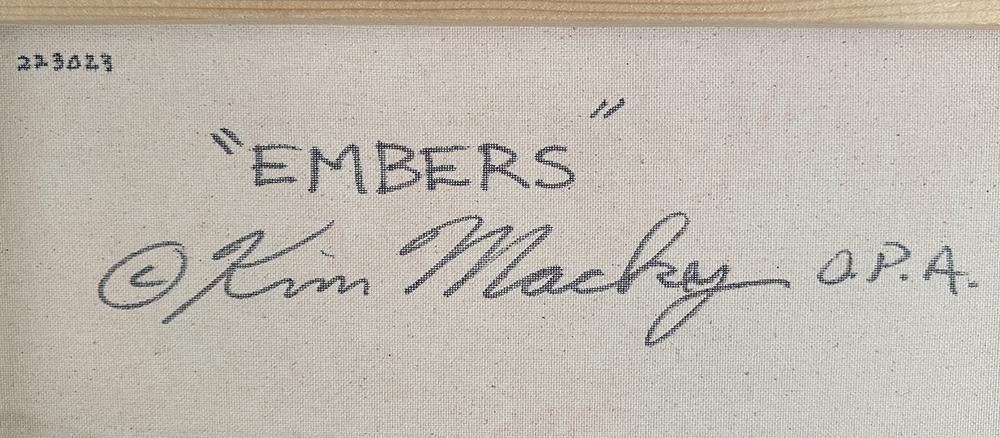 223023
"EMBERS"
© Kim Mackey O.P.A.